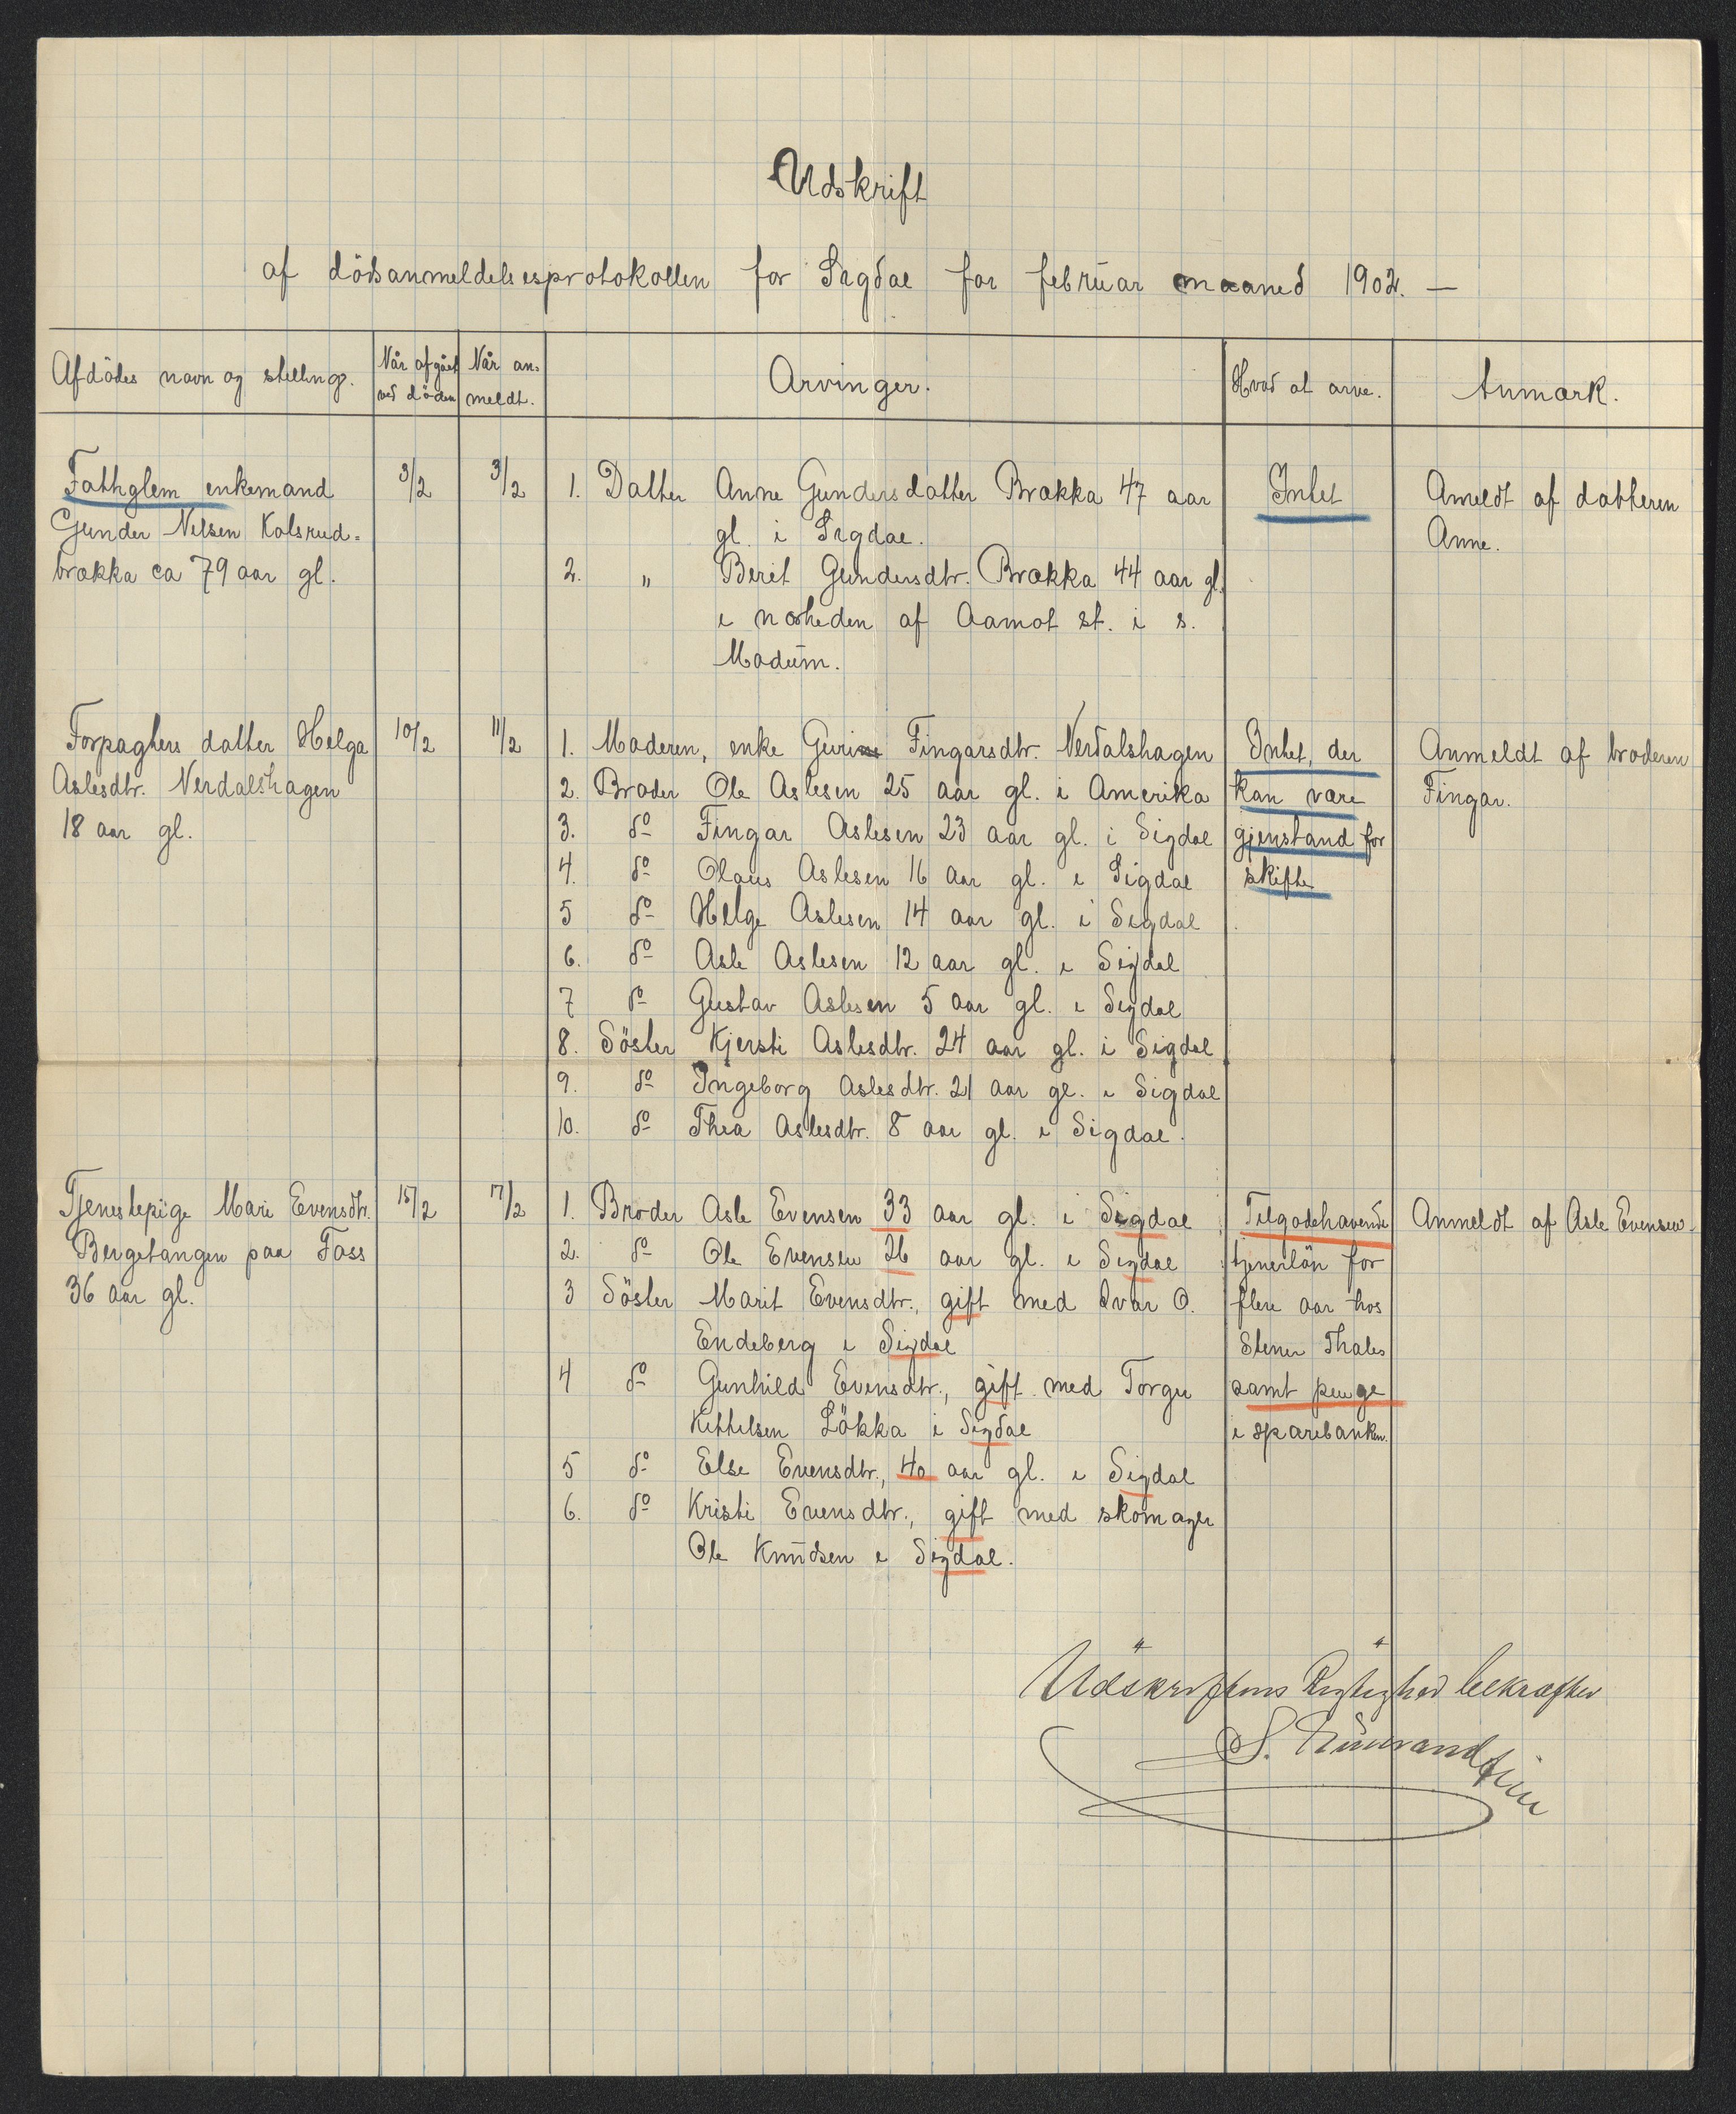 Udskrift
af dödsanmeldelsesprotokollen for Sigdal for februar maaned 1902. —
Afdödes navn og stilling.
Når afgået ved döden
Når an-meldt.
Arvinger.
Hvad at arve.
Anmærk.
Fatheglem enkemand
Gunder Nilsen Kolsrud-
brækka ca 79 aar gl.
3/2
3/2
1. Datter Anne Gundersdatter Brækka 47 aar
gl. i Sigdal.
2. " Berit Gundersdtr. Brækka 44 aar gl.
i nærheden af Aamot st. i s.
Modum.
Intet
Ameldt af datteren
Anne.
Forpagters datter Helga
Aslesdtr. Nerdalshagen
18 aar gl.
10/2
11/2
1. Moderen, enke Guri Fingarsdtr. Nerdalshagen
2. Broder Ole Aslesen 25 aar gl. i Amerika
3. do Fingar Aslesen 23 aar gl. i Sigdal
4. do Olaus Aslesen 16 aar gl. i Sigdal
5 do Helge Aslesen 14 aar gl. i Sigdal
6. do Asle Aslesen 12 aar gl. i Sigdal
7 do Gustav Aslesen 5 aar gl. i Sigdal
8. Söster Kjersti Aslesdtr. 24 aar gl. i Sigdal
9. do Ingeborg Aslesdtr. 21 aar gl. i Sigdal
10. do Thea Aslesdtr. 8 aar gl. i Sigdal.
Intet, der
kan være
gjenstand for
skifte
Anmeldt af broderen
Fingar.
Tjenestepige Mari Evensdtr.
Bergetangen paa Foss
36 aar gl.
15/2
17/2
1. Broder Asle Evensen 33 aar gl. i Sigdal
2. do Ole Evensen 26 aar gl. i Sigdal
3 Söster Marit Evensdtr., gift med Ivar O.
Endeberg i Sigdal
4 do Gunhild Evensdtr., gift med Torger
Kittelsen Lökka i Sigdal
5 do Else Evensdtr., 40 aar gl. i Sigdal
6. do Kristi Evensdtr., gift med skomager
Ole Knudsen i Sigdal.
Tilgodehavende
tjenerlön for
flere aar hos
Stener Thales
samt penge
i sparebanken.
Anmeldt af Asle Evensen.
Udskriftens Rigtighed bekræfter